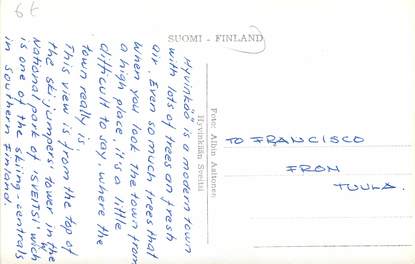 6t
SUOMI - FINLAND
Hyvinkää is a modern town
with lots of trees an fresh
air. Even so much trees that
when you look the town from
a high place, it's a little
difficult to say, where the
town really is.
This view is from the top of
the ski-jumpers' tower in the
National park of 'SVEITSI' wich
is one of the skiing-centrals
in Southern Finland.
Foto: Albin Aaltonen
Hyvinkään Sveitsi
TO FRANCISCO
FRON
TUULA.